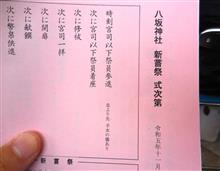 八坂神社 新嘗祭 式次第
令和五年十一月
時刻宮司以下祭員参進
是より先 手水の儀あり
次に宮司以下祭員着座
次に修祓
次に宮司一拝
次に開扉
次に献饌
次に幣帛供進
新嘗祭